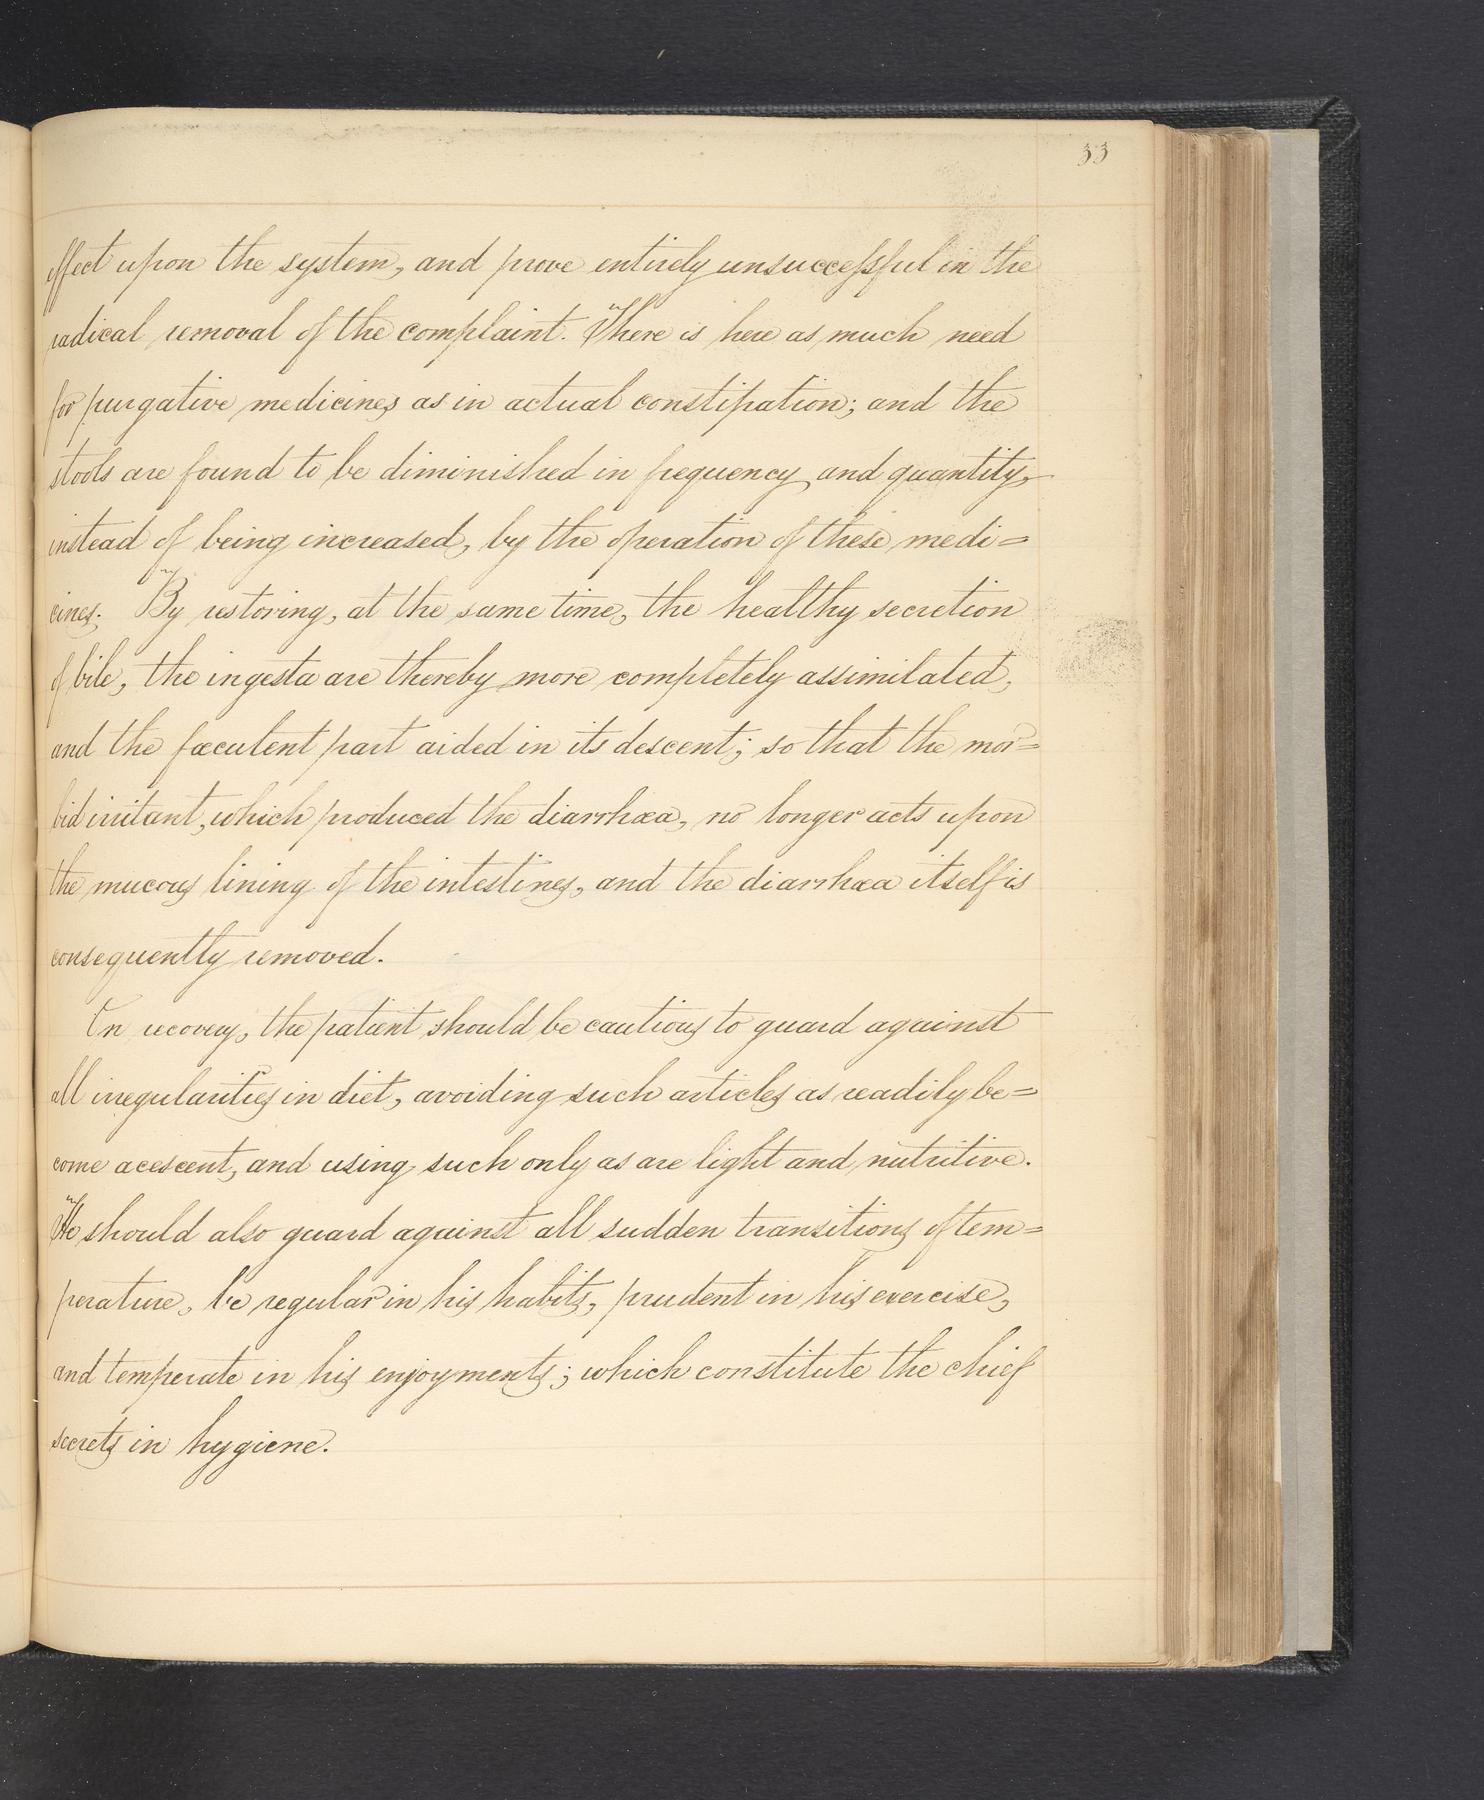 33
effect upon the system, and prove entirely unsuccessful in the
radical removal of the complaint. There is here as much need
for purgative medicines as in actual constipation; and the
stools are found to be diminished in frequency and quantity,
instead of being increased, by the operation of these medi=
cines. By restoring, at the same time, the healthy secretion
of bile, the ingesta are thereby more completely assimilated,
and the fæculent part aided in its descent; so that the mor=
bid irritant, which produced the diarrhœa, no longer acts upon
the mucous lining of the intestines, and the diarrhœa itself is
consequently removed.
On recovery, the patient should be cautious to guard against
all irregularities in diet, avoiding such articles as readily be=
come acescent, and using such only as are light and nutritive.
He should also guard against all sudden transitions of tem=
perature, be regular in his habits, prudent in his exercise,
and temperate in his enjoyments; which constitute the chief
secrets in hygiene.